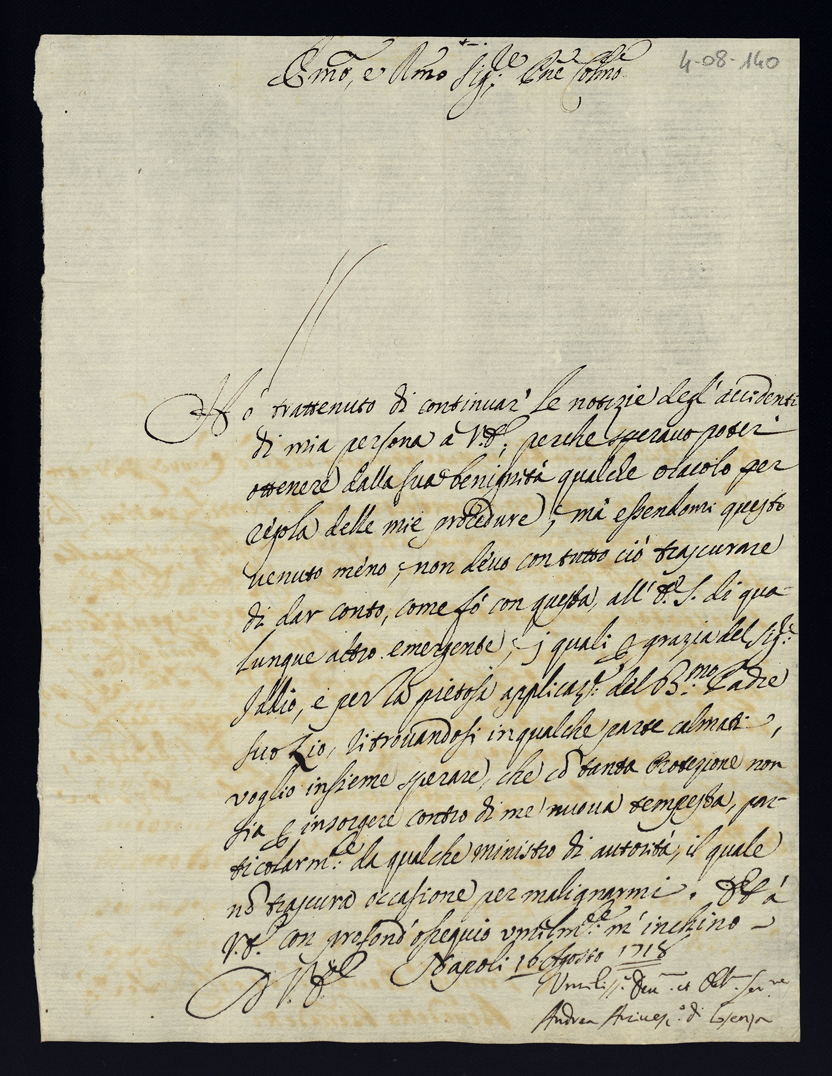 4-08-140
Emo, e Rmo Sig.re Pne Colmo
Hò trattenuto di continuar' le notizie degl' accidenti
di mia persona à V.E.; perche speravo poter'
ottenere dalla sua benignità qualche oracolo per
régola delle mie procedure; mà essendomi questo
venuto méno, non dévo con tutto ciò trascurare
di dar conto, come fó con questa, all' E. S. di qua-
lunque altro emergente; j quali p grazia del Sig.re
Iddio, e per la pietosa applicaz.e del B.mo Padre
suo Zio, ritrovandosi in qualche parte calmati,
voglio insieme sperare, che cō tanta Protezione non
sia p insorgere contro di me nuova tempesta, par-
ticolarm.te da qualche ministro di autorità, il quale
nō trascura occasione per malignarmi. Et à
V.E. con profond' ossequio umilm.te m' inchino
Di V.E. Napoli 16 Agosto 1718
Umiliss.
Andrea Arcivesc.o di Cosenza